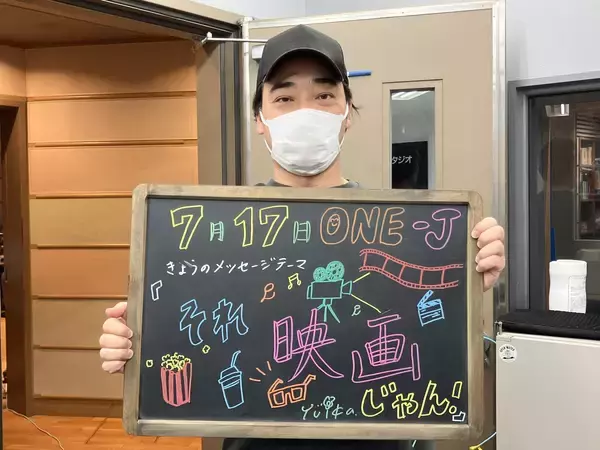 タジオ
7月17日 ONE-J
きょうのメッセージテーマ
『それ
映画
じゃん!』
Yuika.